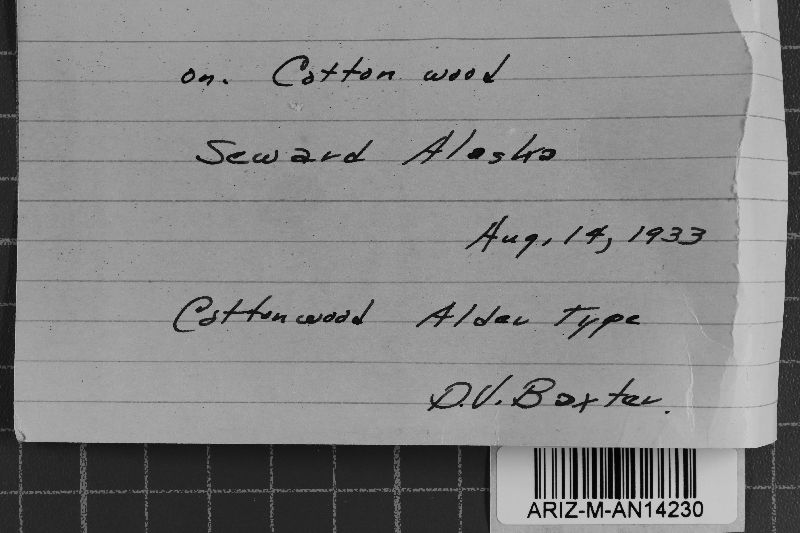 on. Cotton wood
Seward Alaska
Aug. 14, 1933
Cottonwood Alder Type
D.V. Baxter.
ARIZ-M-AN14230